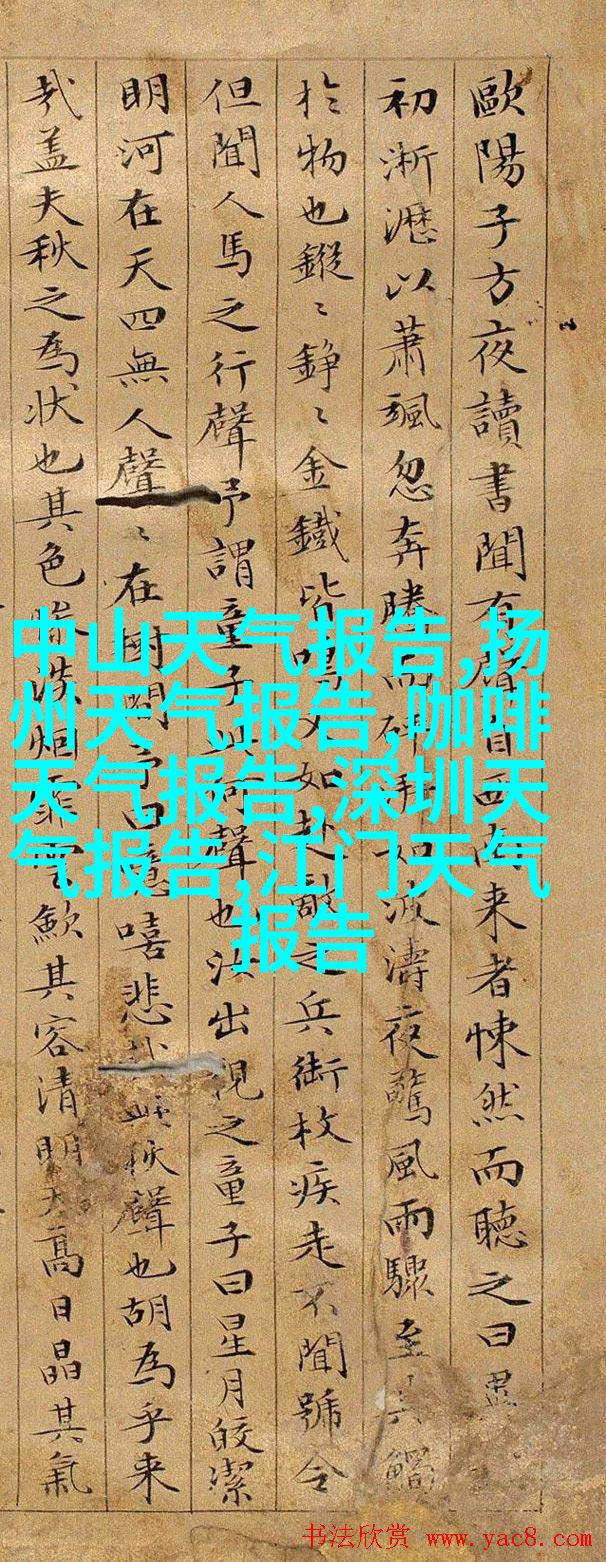 歐陽子方夜讀書聞有聲自西南來者悚然而聽之曰異
初淅瀝以蕭颯忽奔騰而砰湃如波濤夜驚風雨驟至其觸
於物也鏦〻錚〻金鐵皆鳴又如赴敵之兵銜枚疾走不聞號令
但聞人馬之行聲予謂童子此何聲也汝出視之童子曰星月皎潔
明河在天四無人聲〻在樹間予曰噫嘻悲哉此秋聲也胡為乎來
哉盖夫秋之為狀也其色慘淡烟霏雲歛其容清明天高日晶其氣
中山天气报告,扬
州天气报告,咖啡
天气报告,深圳天
气报告,江门天气
报告
书法欣赏 www.yac8.com